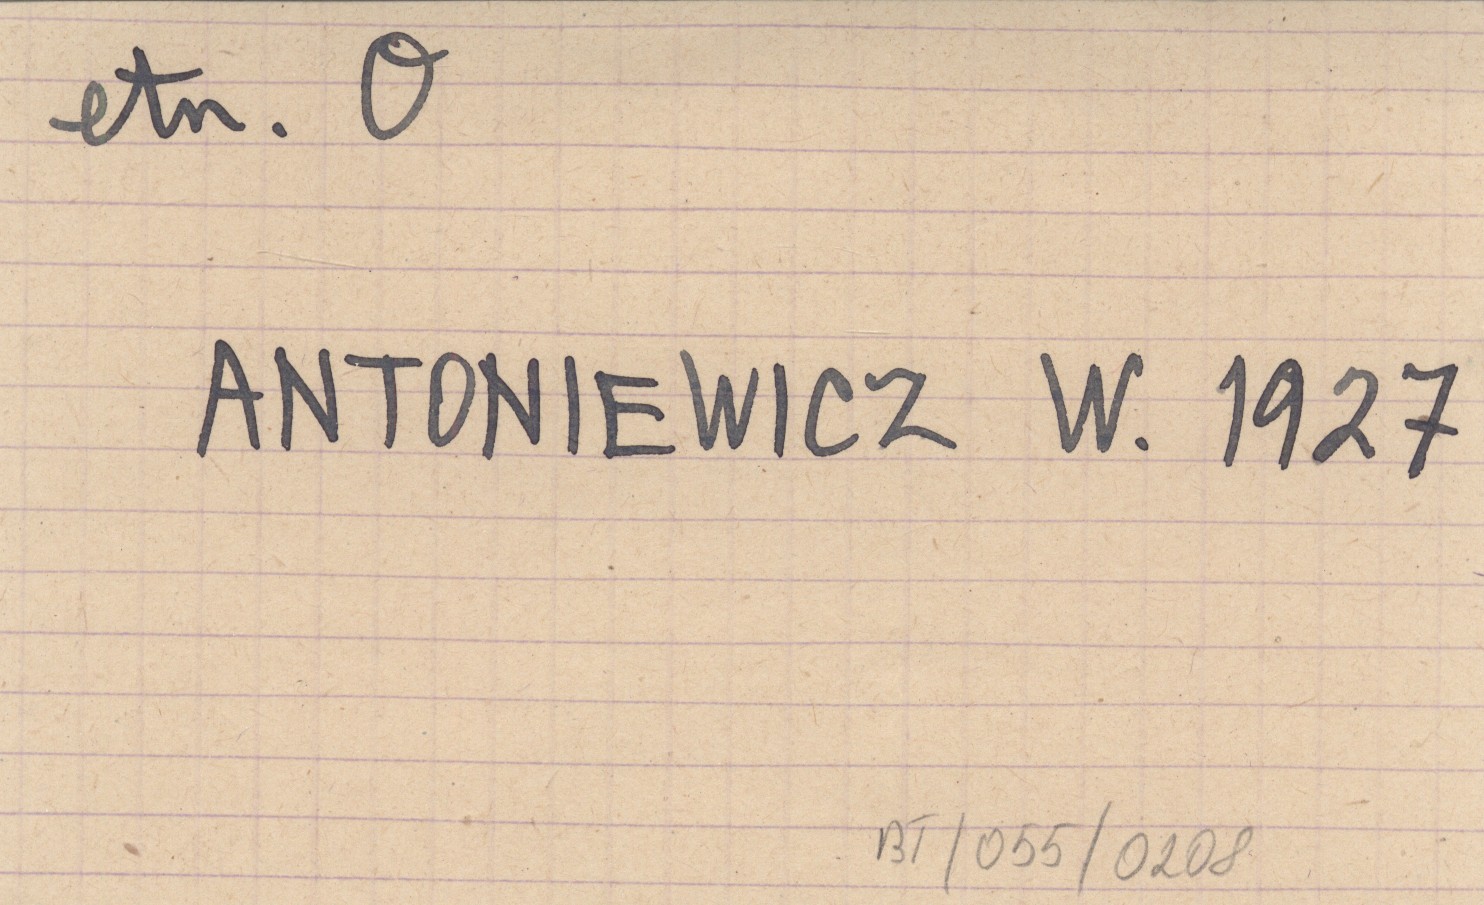 etn. O
ANTONIEWICZ W. 1927
BT/055/0208